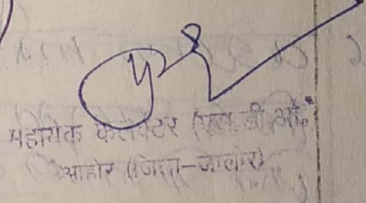 सहायक कलेक्टर (एस.डी.ओ.)
आहोर (जिला-जालोर)